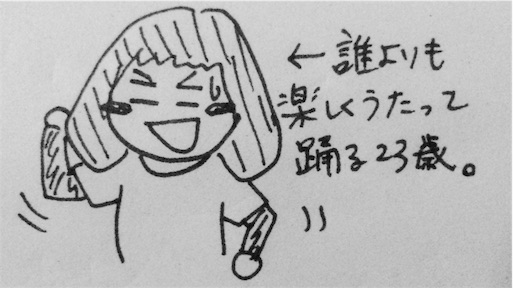 ←誰よりも
楽しくうたって
踊る23歳。